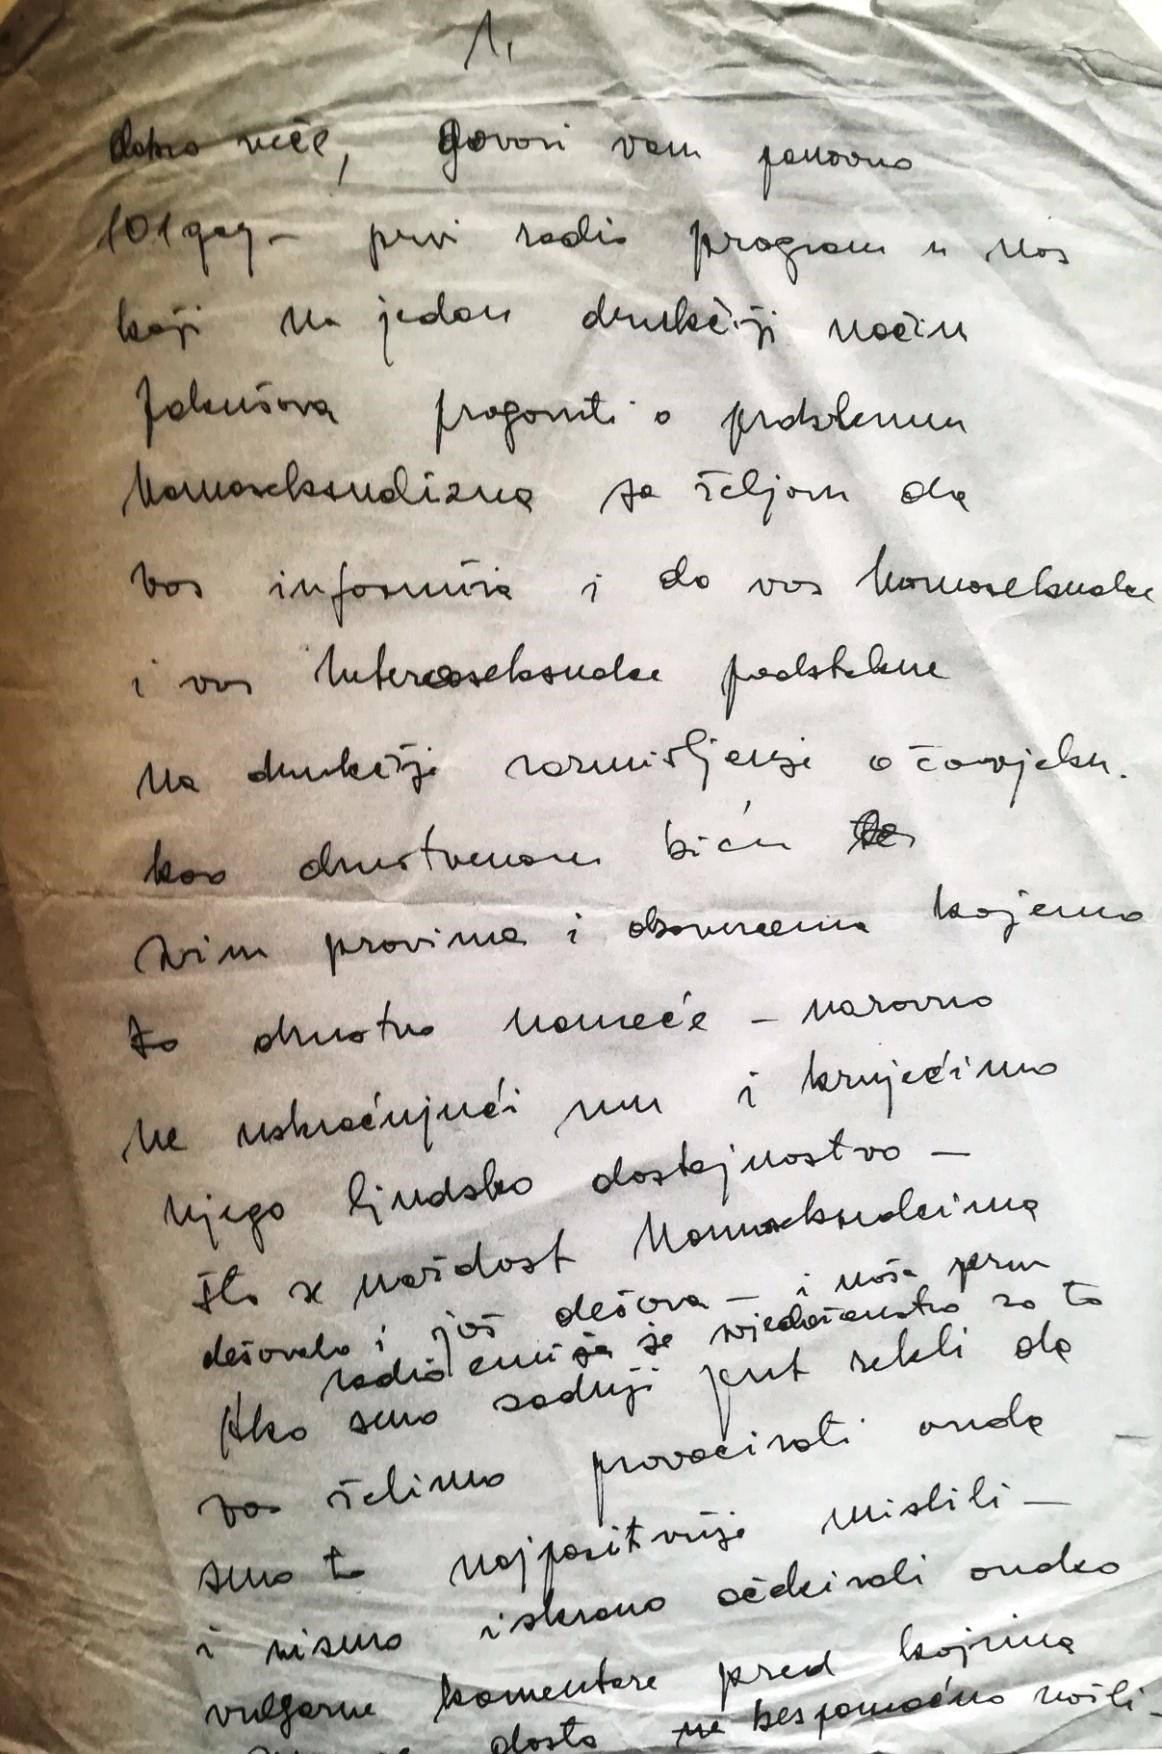 1.
dobro veče, govori vam ponovno
101 gay – prvi radio program u nas
koji na jedan drukčiji način
pokušava progovoriti o problemu
homoseksualizma sa željom da
vas informira i da vas homoseksualce
i vas heteroseksualce podstakne
na drukčije razmišljanje o čovjeku.
kao društvenom biću
svim pravima i obavezama kojemu
to društvo nameće – naravno
ne uskraćujući mu i krnjećimu
njego ljudsko dostojnostvo –
što se nažalost homoseksualcima
dešavalo i još dešava – i naša prva
radio emisija je svjedočanstvo za to
Ako smo zadnji put rekli da
vas želimo provocirati onda –
smo to najpozitivnije mislili –
i nismo iskreno očekivali onako
vulgarne komentare pred kojima
dosta bespomoćno našli –